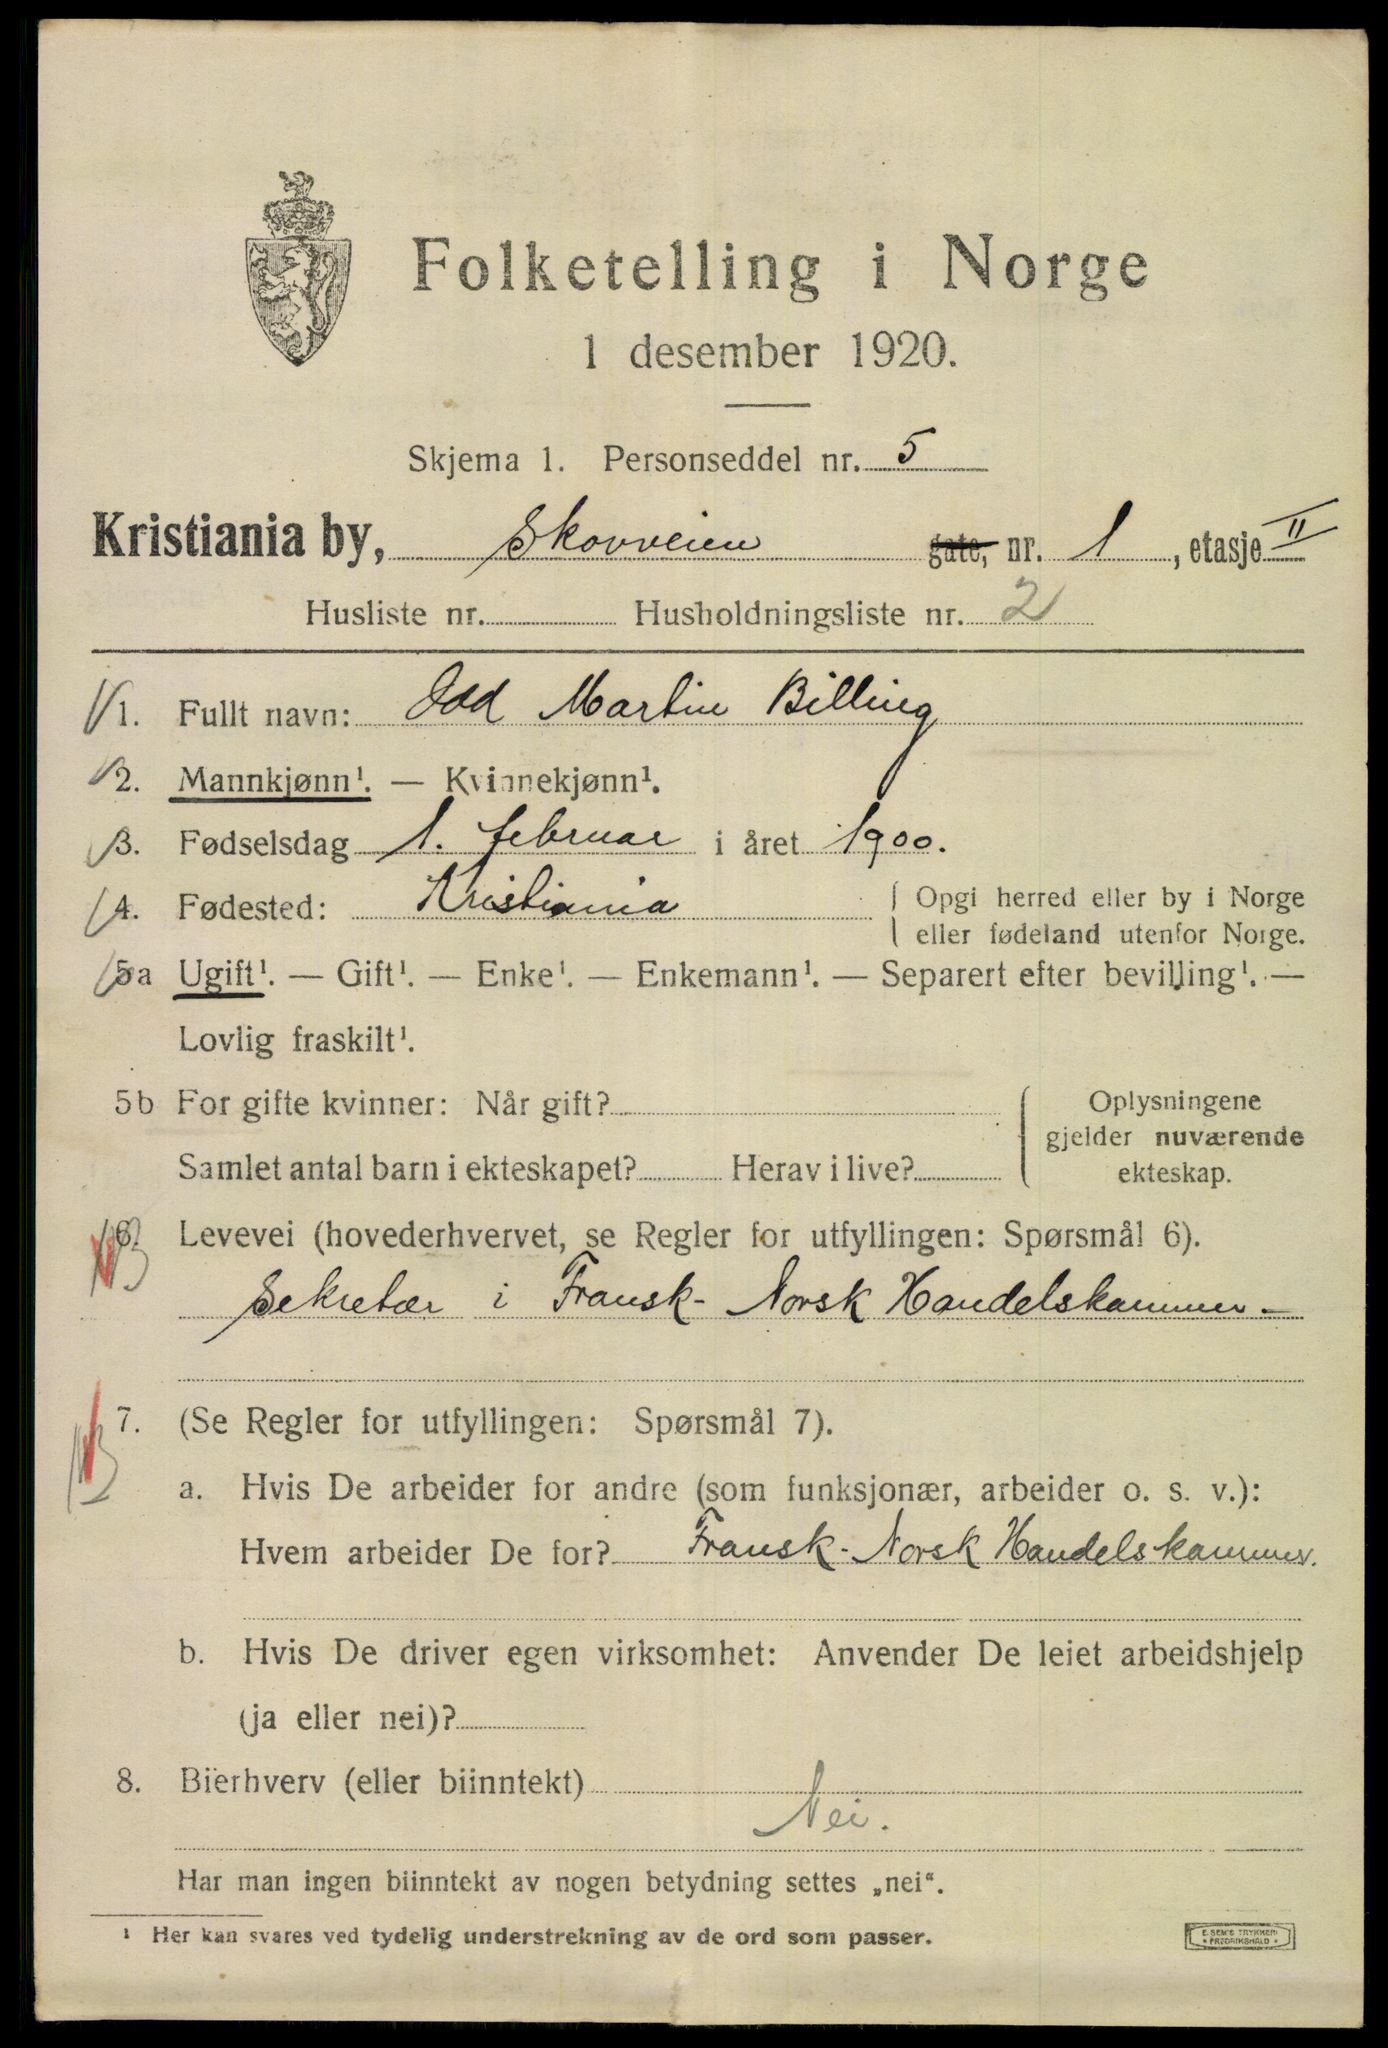 Folketelling i Norge
1 desember 1920.
Skjema 1. Personseddel nr. 5
Kristiania by, Skovveien gate, nr. 1, etasje II
Husliste nr. Husholdningsliste nr. 2
1. Fullt navn: Odd Martin Billing
2. Mannkjønn¹. — Kvinnekjønn¹.
3. Fødselsdag 1. februar i året 1900.
4. Fødested: Kristiania { Opgi herred eller by i Norge
eller fødeland utenfor Norge.
5a Ugift¹. — Gift¹. — Enke¹. — Enkemann¹. — Separert efter bevilling¹. —
Lovlig fraskilt¹.
5b For gifte kvinner: Når gift? { Oplysningene
gjelder nuværende
Samlet antal barn i ekteskapet? Herav i live? ekteskap.
6. Levevei (hovederhvervet, se Regler for utfyllingen: Spørsmål 6).
Sekretær i Fransk-Norsk Handelskammer-
7. (Se Regler for utfyllingen: Spørsmål 7).
a. Hvis De arbeider for andre (som funksjonær, arbeider o. s. v.):
Hvem arbeider De for? Fransk-Norsk Handelskammer.
b. Hvis De driver egen virksomhet: Anvender De leiet arbeidshjelp
(ja eller nei)?
8. Bierhverv (eller biinntekt)
Nei.
Har man ingen biinntekt av nogen betydning settes „nei“.
¹ Her kan svares ved tydelig understrekning av de ord som passer.
E SEM'S TRYKKERI
• FREDRIKSHALD •